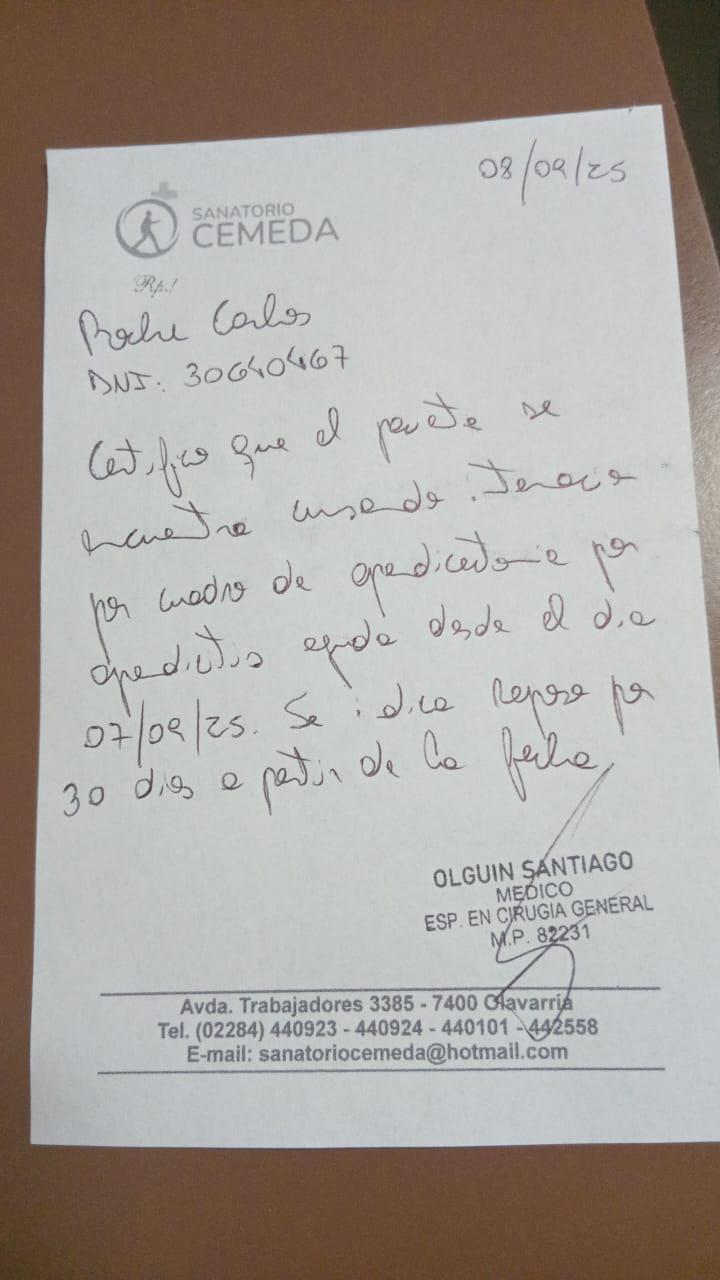 08/09/25
SANATORIO
CEMEDA
Rp./
Carlos
DNI: 30640467
Certifico que el paciente se
encuentra cursando internacion
por cuadro de apendicectomia por
apendicitis aguda desde el dia
07/09/25. Se indica reposo por
30 dias a partir de la fecha.
OLGUIN SANTIAGO
MEDICO
ESP. EN CIRUGIA GENERAL
M.P. 82231
Avda. Trabajadores 3385 - 7400 Olavarría
Tel. (02284) 440923 - 440924 - 440101 - 442558
E-mail: sanatoriocemeda@hotmail.com